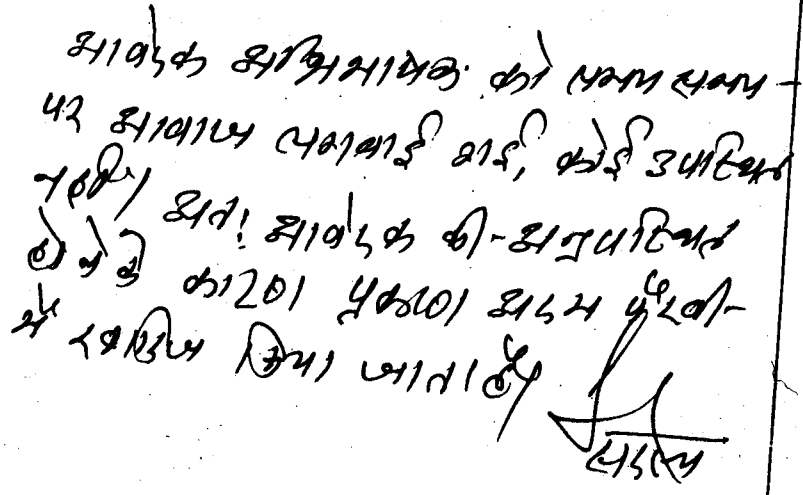 आवेदक अभिभाषक को समय समय -
पर आवाज लगवाई गई, कोई उपस्थित
नहीं। अतः आवेदक की - अनुपस्थित
होने के कारण प्रकरण अदम पैरवी -
में खारिज किया जाता है।
सदस्य